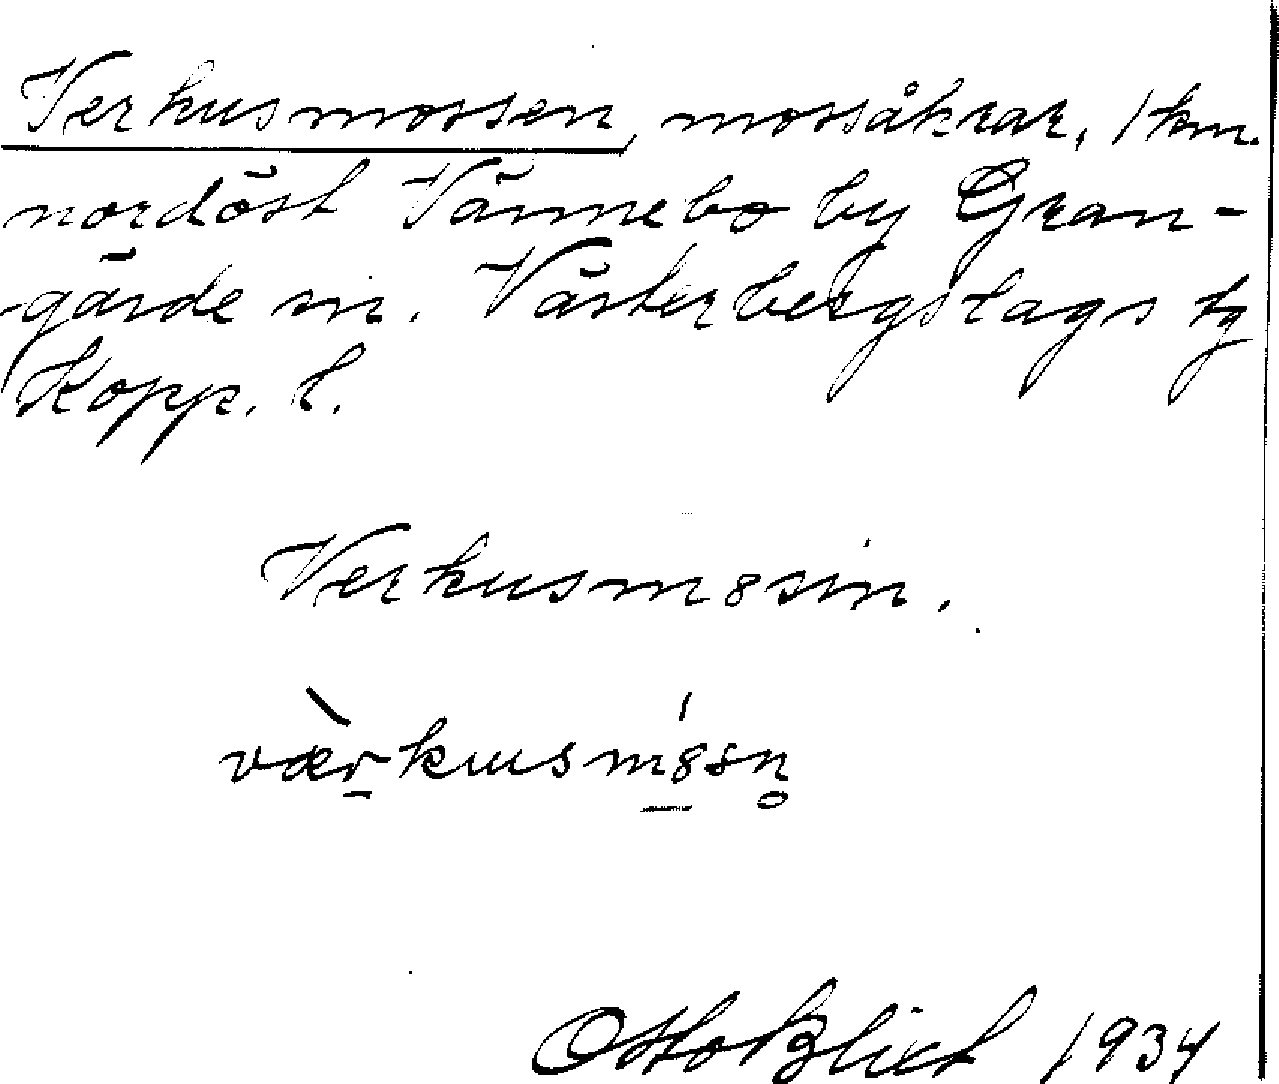 Verkusmossen, mossåkrar, 1 km.
nordöst Vännebo by Gran-
gärde sn. Västerbergslags tg
Kopp. l.
Verkusmɵsin.
væ̀r̠kɯusm̠ɵ́sn̥
Otto Blixt 1934